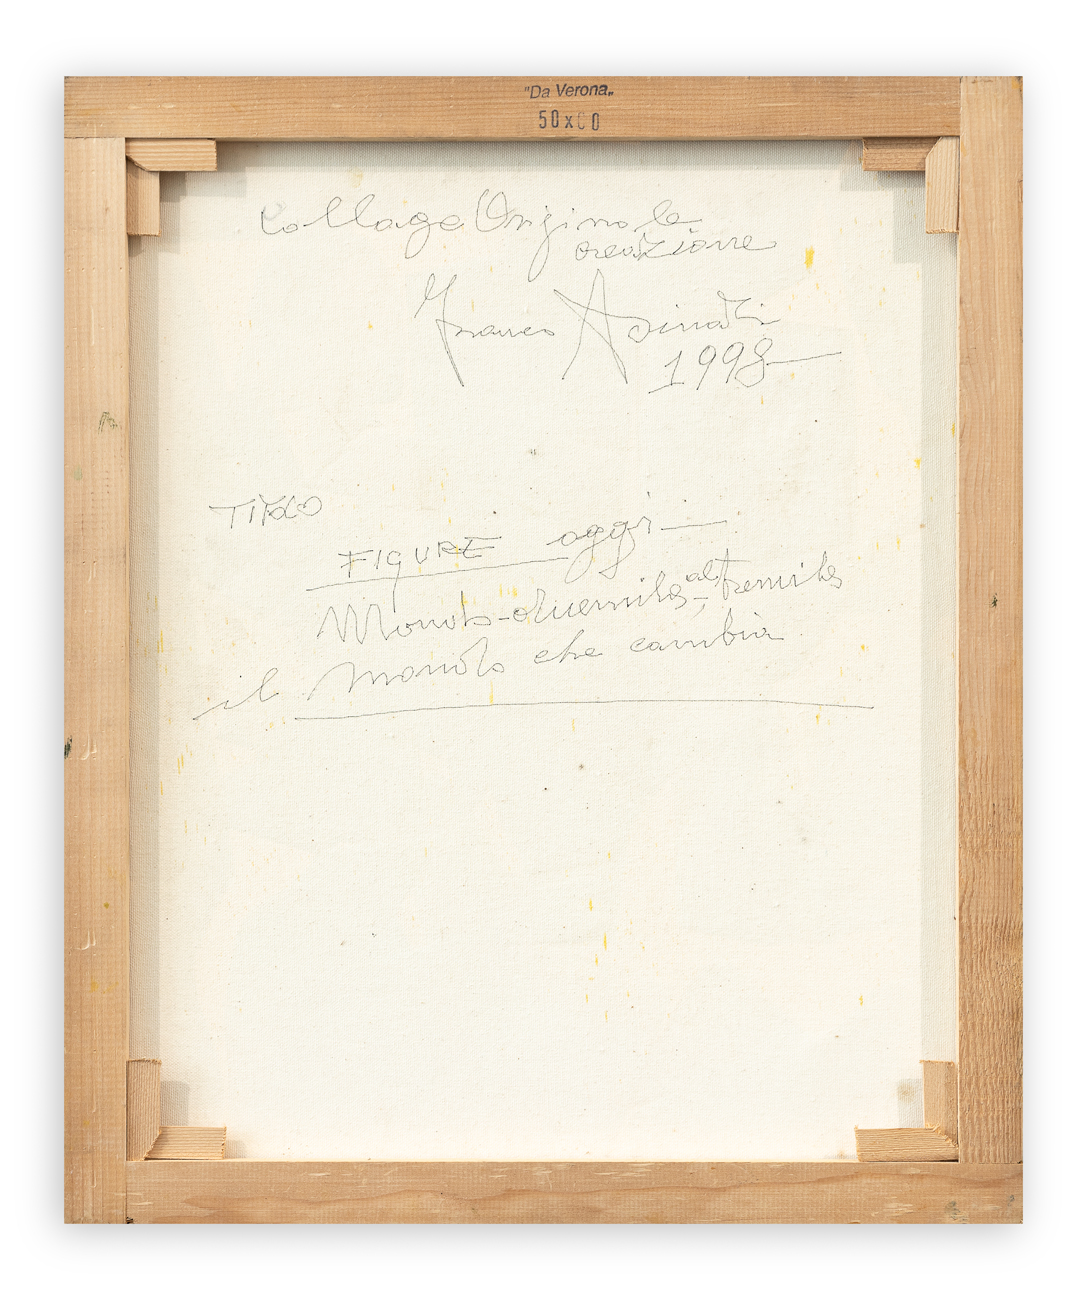 "Da Verona„
50x60
Collage Originale
creazione
Franco Asinari
1998
TITOLO
FIGURE oggi
Mondo-duemila al tremila
il mondo che cambia